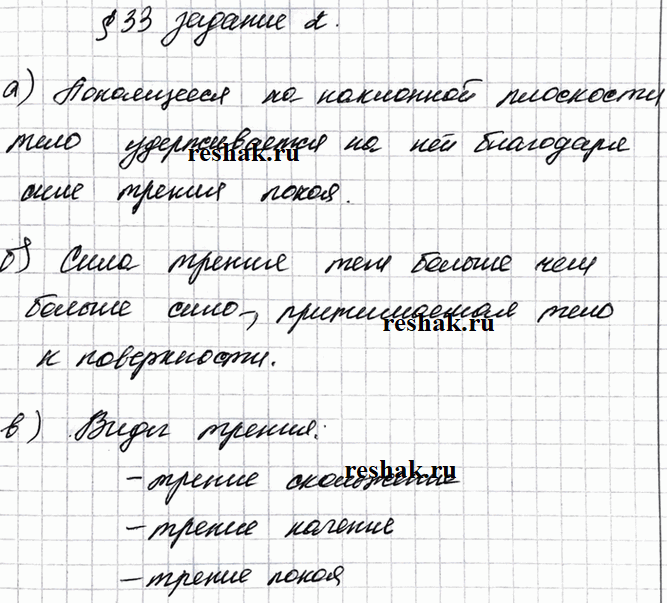 § 33 задание 2.
а) Покоящееся на наклонной плоскости
тело удерживается на ней благодаря
reshak.ru
силе трения покоя.
б) Сила трения тем больше чем
больше сила, притимаемая тело
reshak.ru
к поверхности.
в) Виды трения:
reshak.ru
- трение скольжение
- трение качение
- трение покоя